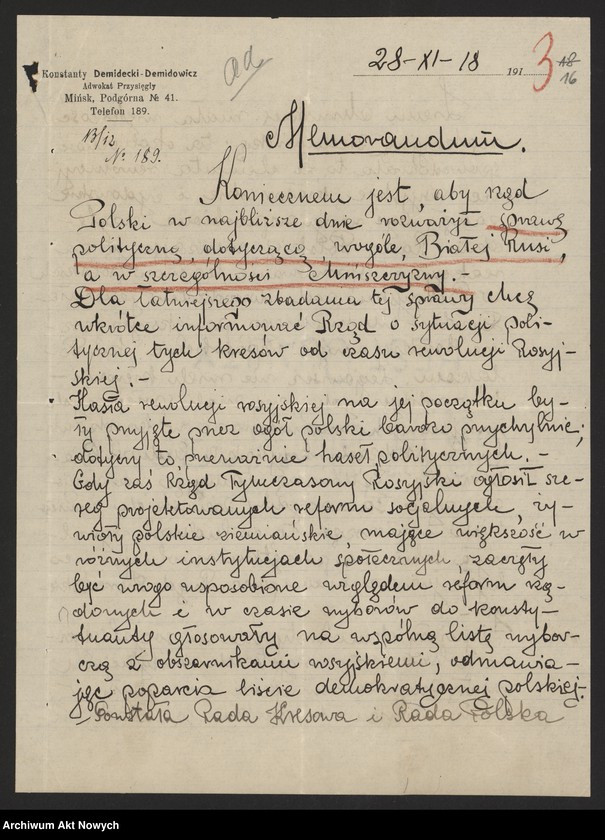 Konstanty Demidecki-Demidowicz
Adwokat Przysięgły
Mińsk, Podgórna № 41.
Telefon 189.
13/12
№ 189.
ad
28-XI-18 191
3
18
16
Memorandum.
Koniecznem jest, aby rząd
Polski w najbliższe dnie rozważył sprawę
polityczną, dotyczącą, wogóle, Białej Rusi,
a w szczególności Mińszczyzny.-
Dla łatwiejszego zbadania tej sprawy chcę
wkrótce informować Rząd o sytuacji poli-
tycznej tych kresów od czasu rewolucji Rosyj-
skiej.-
Hasła rewolucji rosyjskiej na jej początku by-
ły przyjęte przez ogół polski bardzo przychylnie;
dotyczy to, przeważnie haseł politycznych.-
Gdy zaś Rząd Tymczasowy Rosyjski ogłosił sze-
reg projektowanych reform socjalnych, ży-
wioły polskie ziemiańskie, mające większość w
różnych instytucjach społecznych, zaczęły
być wrogo usposobione względem reform żą-
danych i w czasie wyborów do konsty-
tuanty głosowały na wspólną listę wybor-
czą z obszarnikami rosyjskiemi, odmawia-
jąc poparcia liście demokratycznej polskiej.
Powstała Rada Kresowa i Rada Polska
Archiwum Akt Nowych